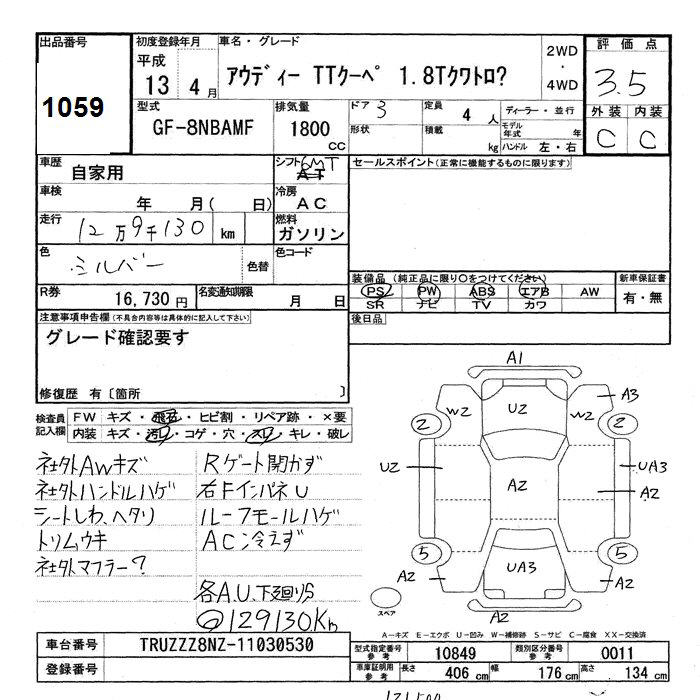 出品番号
1059
初度登録年月
平成
13 4月
車名・グレード
アウディー TTクーペ 1.8Tクワトロ?
2WD
・
4WD
評価点
3.5
外装 内装
C C
型式
GF-8NBAMF
排気量
1800
CC
ドア 3
形状
定員 4 人
積載 kg
ディーラー・並行
モデル年式 年
ハンドル 左・右
車歴 自家用
シフト 6MT
AT
セールスポイント(正常に機能するものに限ります)
車検 年 月( 日)
冷房 AC
走行 12万9千130 km
燃料 ガソリン
色 シルバー 色替
色コード
装備品(純正品に限り○をつけてください)
PS PW ABS エアB AW
SR ナビ TV カワ
新車保証書
有・無
R券 16,730円
名変通知期限 月 日
後日品
注意事項申告欄(不具合内容等は具体的に記入して下さい)
グレード確認要す
修復歴 有〔箇所 〕
検査員記入欄
FW キズ・飛石・ヒビ割・リペア跡・×要
内装 キズ・汚れ・コゲ・穴・スレ・キレ・破レ
社外AWキズ
社外ハンドルハゲ
シートしわ、ヘタリ
トリムウキ
社外マフラー?
Rゲート開かず
右Fインパネ U
ルーフモールハゲ
AC冷えず
各A.U.下廻りS
129130Km
A1
W2 U2 W2 A3
2 2
U2 A2 UA3
A2
5 5
A2 UA3 A2
A2
スペア
A-キズ E-エクボ U-凹み W-補修跡 S-サビ C-腐食 XX-交換済
車台番号 TRUZZZ8NZ-11030530
登録番号
型式指定番号 参考 10849
類別区分番号 参考 0011
車庫証明用 参考 長さ 406 cm 幅 176 cm 高さ 134 cm